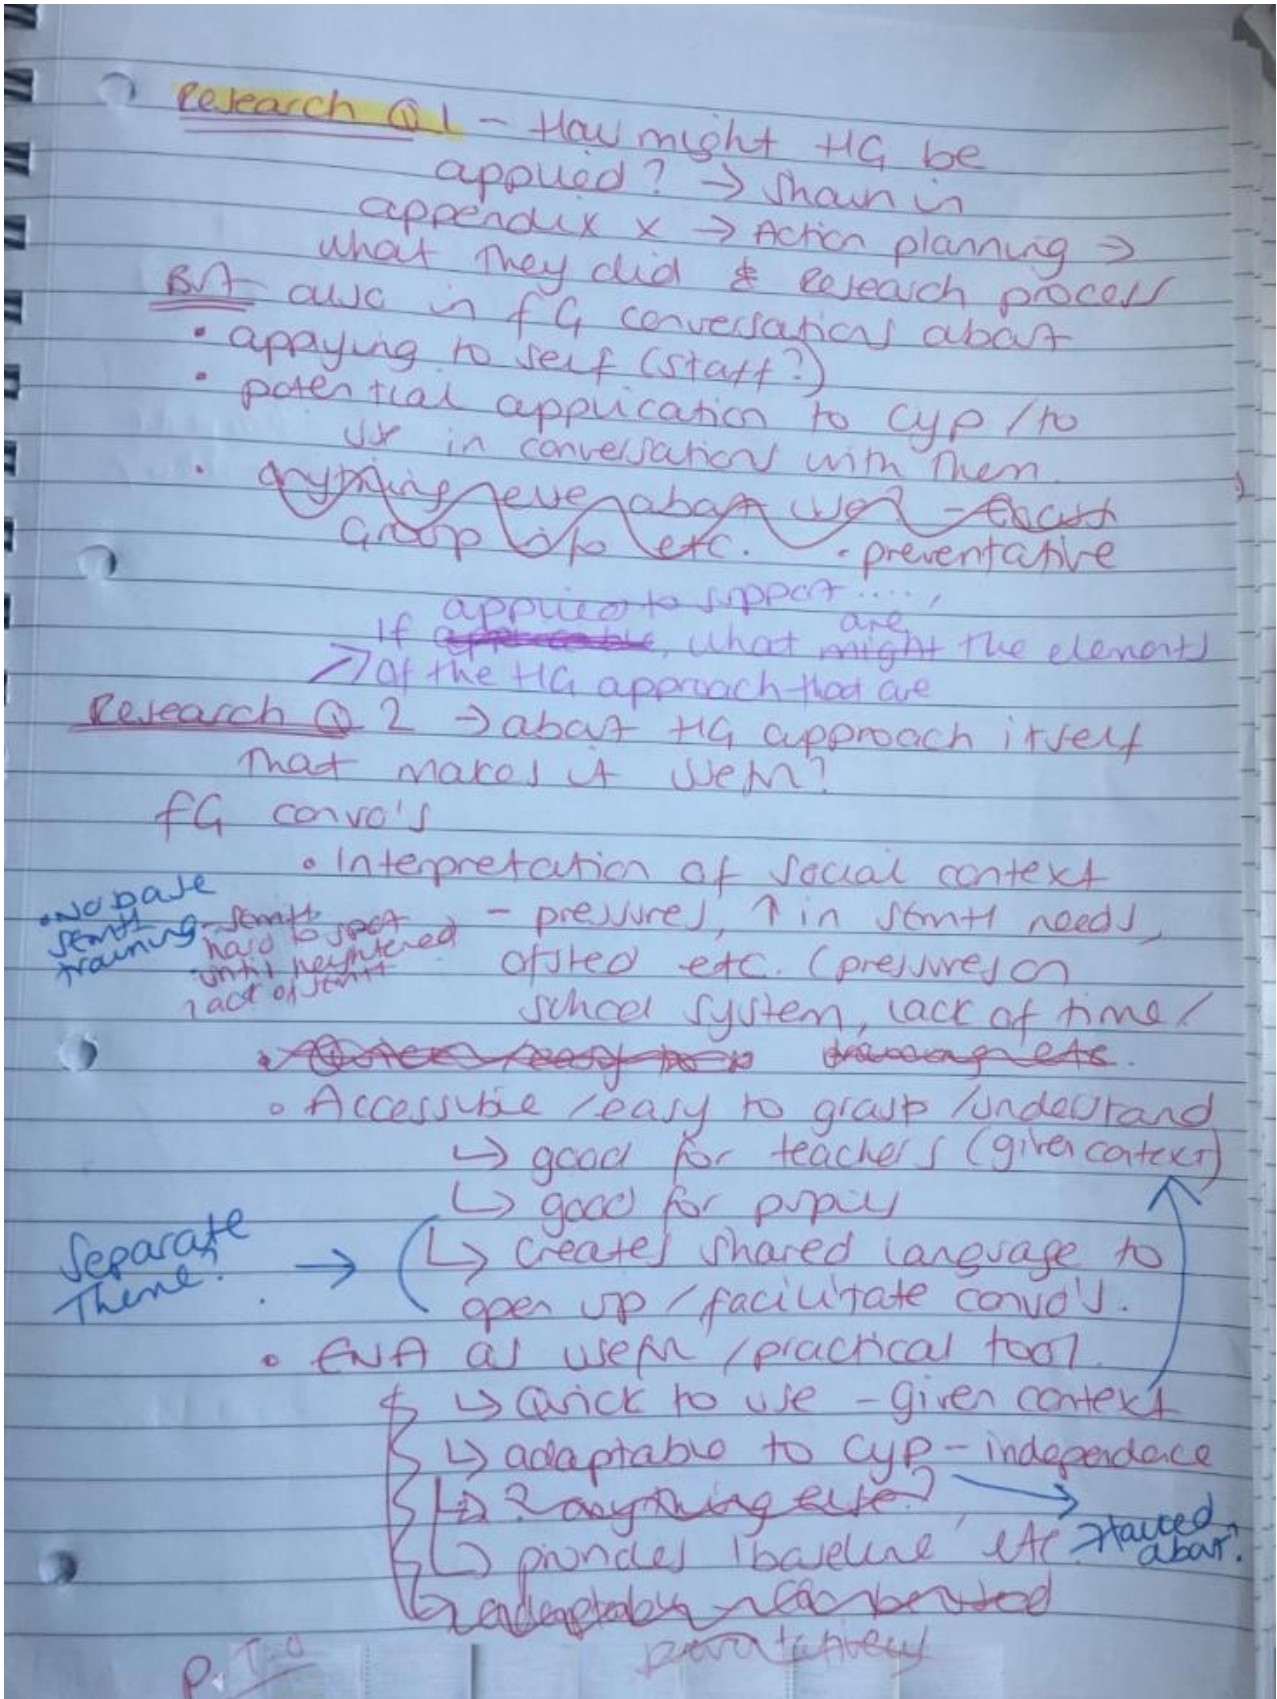 Research Q1 - How might HG be
applied? → Shown in
appendix x → Action planning →
what they did & Research process
BUT also in FG conversations about
• applying to self (staff?)
• potential application to CYP / to
use in conversations with them
• anything else about use? - 
Group etc. • preventative
applied to support ....,
If what might are the elements
↗ of the HG approach that are
Research Q2 → about HG approach itself
that makes it useful?
FG convo's
• Interpretation of social context
- pressures, ↑ in SEMH needs,
Ofsted etc. (pressures on
school system, lack of time /
training etc.
• No base
SEMH
training
- SEMH
hard to spot
until heightened
lack of SEMH
• Accessible / easy to grasp / understand
↳ good for teachers (given context)
↳ good for pupils
↳ creates shared language to
open up / facilitate convo's.
Separate
Theme? →
• ENA as useful / practical tool
↳ Quick to use - given context
↳ adaptable to CYP - independence
↳ ? anything else?
↳ provides 'baseline' etc
→ talked
about?
preventatively
P.T.O